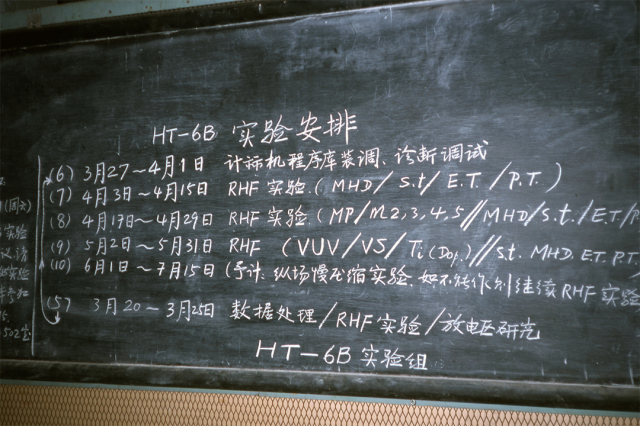 HT-6B 实验安排
(6) 3月27~4月1日 计标机程序库装调、诊断调试
(7) 4月3日~4月15日 RHF 实验.(MHD/S.t/E.T./P.T.)
(8) 4月17日~4月29日 RHF 实验(MP/m2,3,4,5//MHD/S.t./E.T/
(9) 5月2日~5月31日 RHF (VUV/VS/Ti(Dop.)//S.t. MHD. E.T. P.T.
(10) 6月1日~7月15日(予计.纵场慢压缩实验.如不能作则继续RHF实验
(5) 3月20~3月25日 数据处理/RHF实验/放电研究
HT-6B 实验组
实验
502室